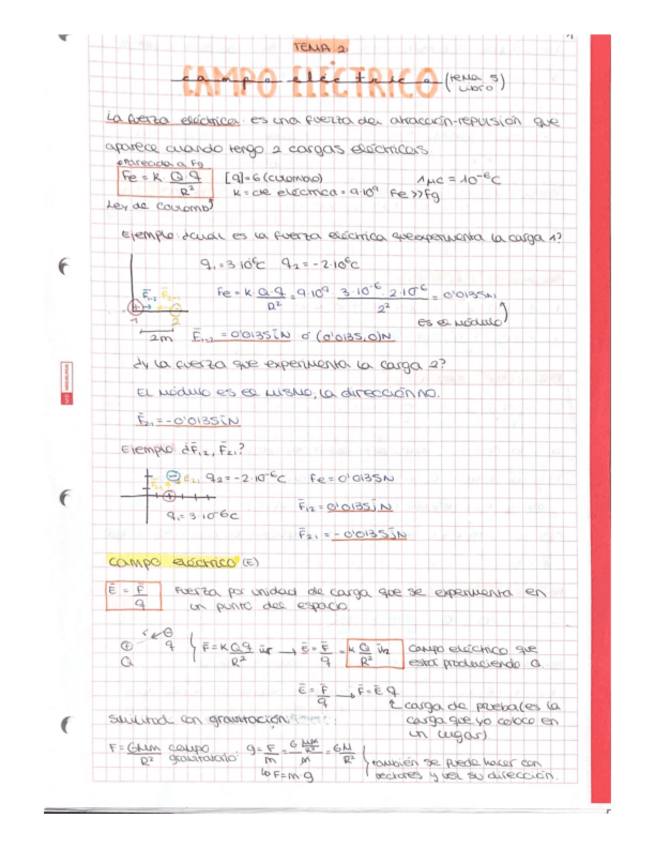 TEMA 2.
CAMPO ELÉCTRICO
campo eléctrico (tema 5 libro)
La fuerza eléctrica: es una fuerza de atracción-repulsión que
aparece cuando tengo 2 cargas eléctricas
parecida a Fg
Fe = K Q·q / R² [q]=C (culombio) 1μC = 10⁻⁶C
K = cte eléctrica = 9·10⁹ Fe >> Fg
Ley de Coulomb
Ejemplo: ¿cuál es la fuerza eléctrica que experimenta la carga 1?
q₁=3·10⁻⁶C q₂=-2·10⁻⁶C
Fe = K Q·q / R² = 9·10⁹ 3·10⁻⁶ 2·10⁻⁶ / 2² = 0'0135N
es el módulo
1 2
2m F̄₁₂ = 0'0135 i N ó (0'0135,0)N
¿y la fuerza que experimenta la carga 2?
El módulo es el mismo, la dirección no.
F̄₂₁ = -0'0135 i N
Ejemplo ¿F̄₁₂, F̄₂₁?
q₂=-2·10⁻⁶C Fe = 0'0135N
q₁=3·10⁻⁶C F̄₁₂ = 0'0135 j N
F̄₂₁ = -0'0135 j N
campo eléctrico (E)
Ē = F̄ / q Fuerza por unidad de carga que se experimenta en
un punto del espacio.
Q q F̄ = K Q q / R² ūr → Ē = F̄ / q = K Q / R² ūr campo eléctrico que
estar produciendo Q
Ē = F̄ / q → F̄ = Ē q
carga de prueba (es la
carga que yo coloco en
un lugar)
similitud con gravitación
F = GMm / R² campo gravitatorio: g = F / m = G Mm/R² / m = GM / R²
↳ F = m g
también se puede hacer con
vectores y ver su dirección.